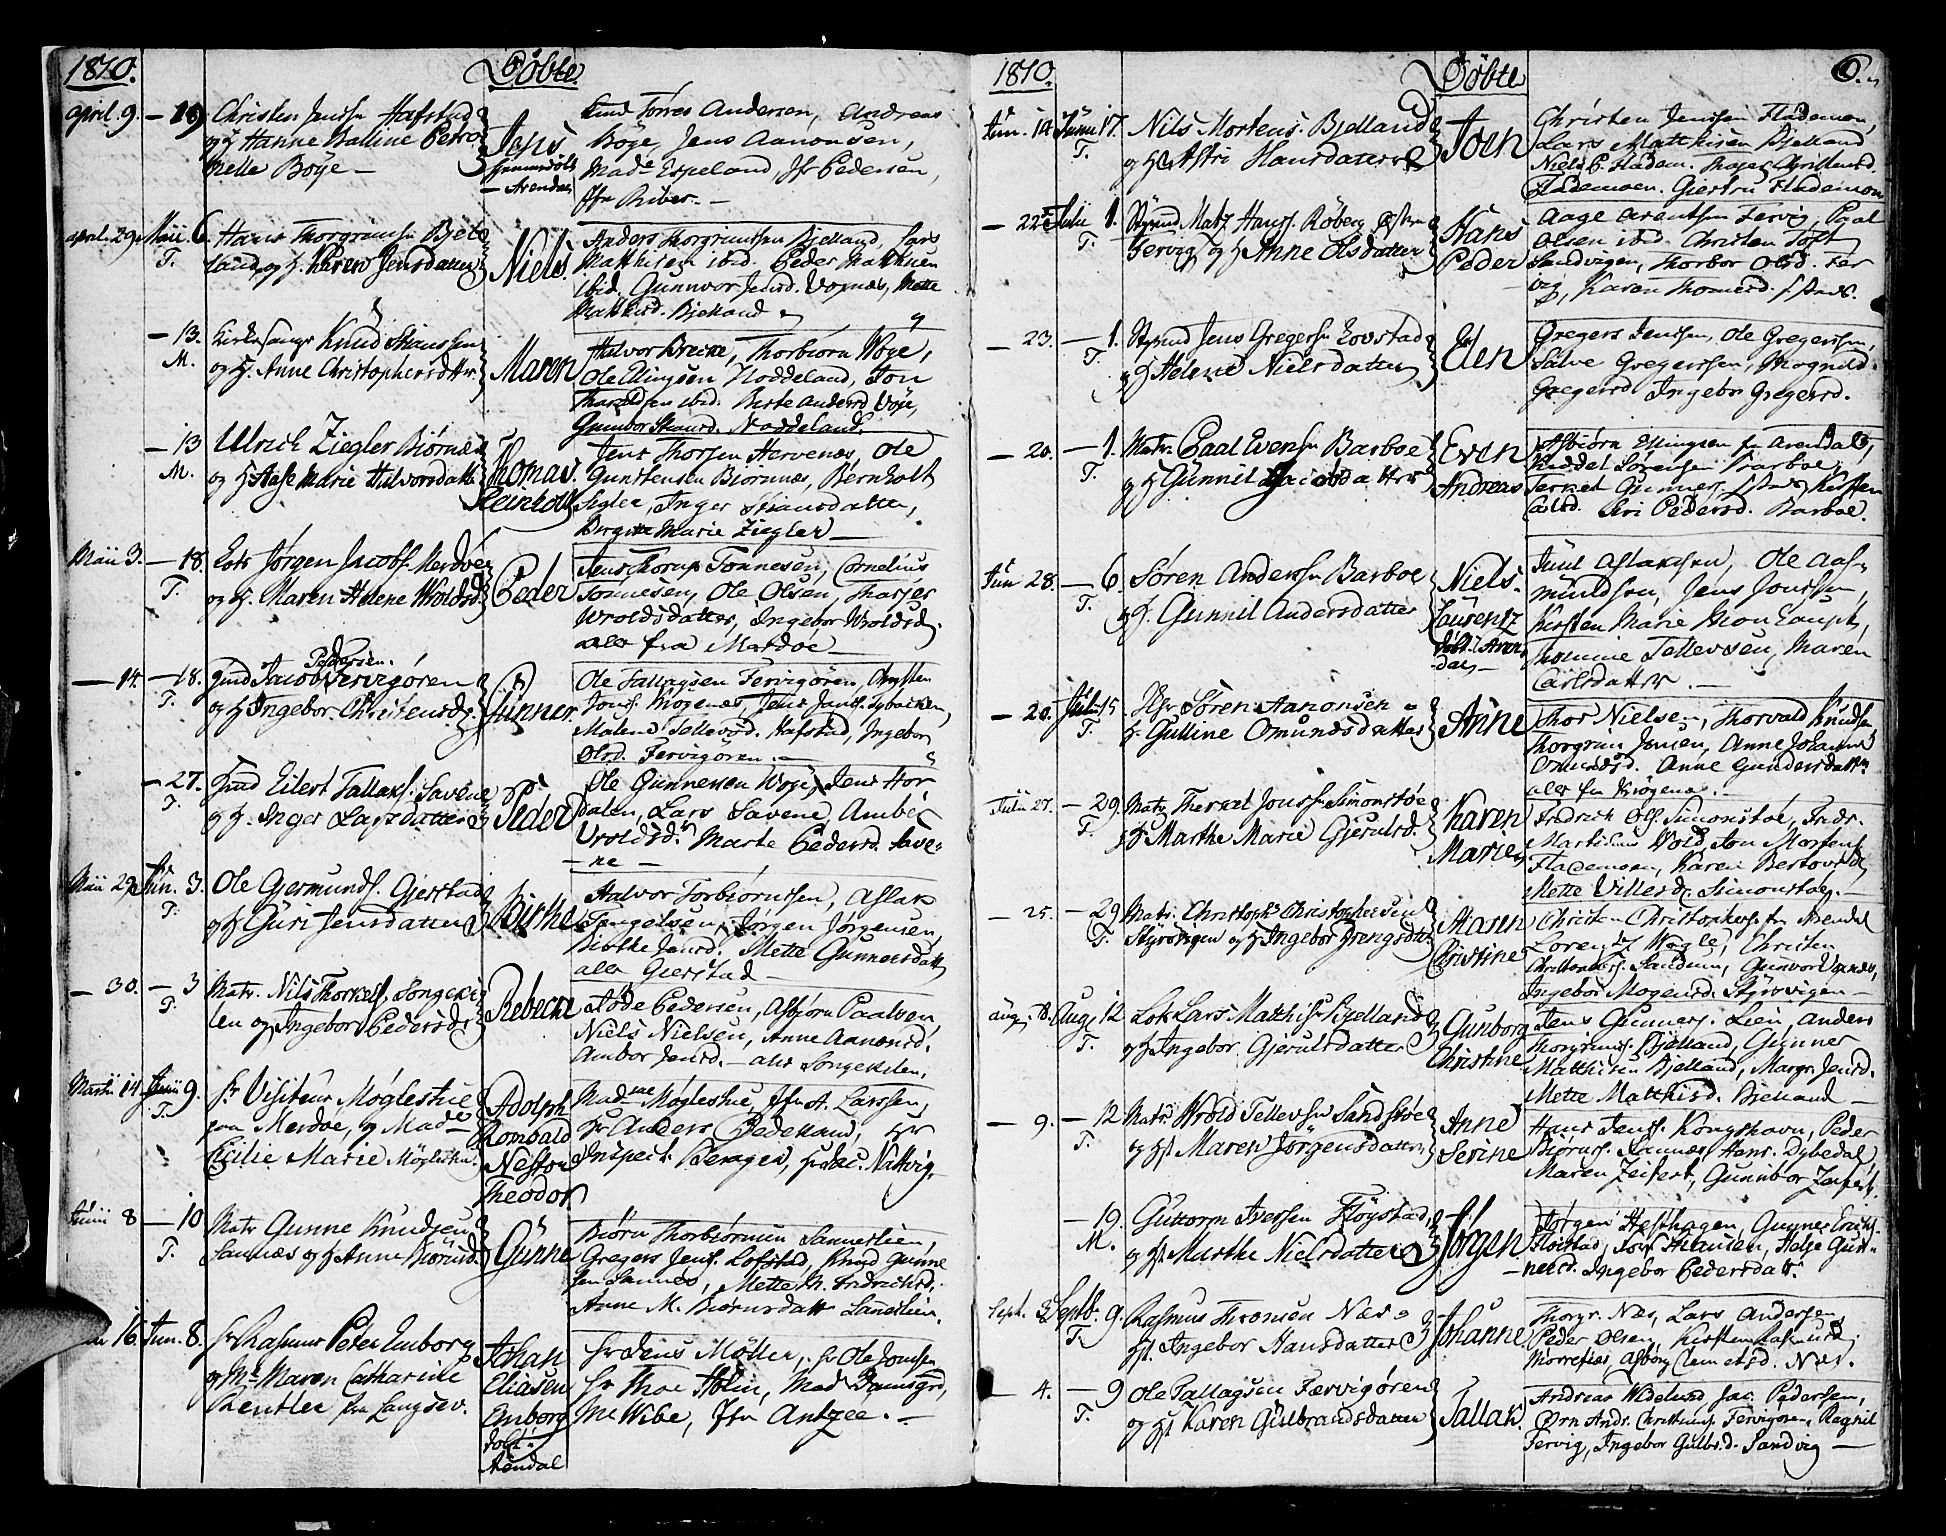 1810. Döbte
april. 9. — 19 Christen Jensen Hafstad
og H Hanne Malline Petro
nelle Böye — Jens
Arendal
Törres Andersen, Andreas
Böye, Jens Aanonsen,
Mad. Espeland, Jfr Pedersen,
Jfr Riber. —
april. 29. Maii 6. T. Hans Thorgrimsen Bjel
land og H. Karen Jensdatter Niels.
Anders Thorgrimsen Bjelland, Lars
Mathisen ibid. Peder Mathisen
ibid. Gunnvor Jensd. Vognæs, Mette
Mathisd. Bjelland
— 13. M. Kirkesanger Knud Skaussen
og H. Anne Christophersdttr. Maren
Halvor Brekke, Thorbiörn Woge,
Ole Ellingsen Noddeland, Jon
Haraldsen ibid. Berte Andersd. Woge,
Gunbor Skausd. Noddeland.
— 13 M. Ulrich Ziegler Biörnæs
og H Aase Marie Halvorsdatter Thomas
Reinholt
Jens Thorsen Hervenæs, Ole
Guntensen Biörnnæs, Bernholt
Sigler, Inger Stiansdatter,
Birgitte Marie Ziegler —
Maii 3. — 18. T. Lots Jörgen Jacobs. Merdöe
og H. Maren Helene Wroldsd. Peder
Jens Thorup Tönnesen, Cornelius
Tönnesen, Ole Olsen, Thorjer
Wroldsdatter, Ingebor Wroldsd.
alle fra Merdöe —
— 14. — 18. T. Pedersen.
Gmd Jacob Fervigören
og H Ingebor Christensd. Gunner.
Ole Tallagsen Fervigören, Chrysten
Jons. Krögenes, Jens Jans. Tybacken,
Malene Tellevsd. Hafstad, Ingebor
Olsd. Fervigören. —
— 27. T. Gmd Eilert Tallaks. Savene
og H. Inger Larsdatter Peder
Ole Gunnersen Woge, Jens Hor
dalen, Lars Savene, Amber
Wroldsd. Marte Pedersd. Save-
— ne —
Maii 29. Jun. 3. T. Ole Germunds. Gjerstad
og H Guri Jensdatter Birthe
Halvor Torbiörnsen, Aslak
Tengelsen, Jörgen Jörgensen,
Birthe Jensd. Mette Gunnersdatt
alle Gjerstad —
— 30. — 3 T. Matr. Nils Thorkels. Songeki
len og Ingebor Pedersd. Rebecca
Lode Pedersen, Asbjörn Paalsen,
Niels Nielsen, Anne Aanonsd.
Ambor Jensd. — alle Songekilen.
Martii 14. Junii 9. T. Hr. Visiteur Möglestue
paa Merdöe, og Mad.
Cicilie Marie Möglestue. Adolph
Rombald
Nestor
Theodor
Madme Möglestue, Jfr A. Larssen,
Hr Anders Bedekand, Hr
Inspect. Berager, Hr Jac. Nattvig.
Junii 8 — 10 T. Matr Gunne Knudsen
Sannæs og H Anne Biörnsd. Gunne
Biörn Thorbiörnsen Sannerlien,
Gregers Jens. Lofstad, Knud Gunne
sen Sannes, Mette M. Fredrichsd.
Anne M. Biörnsdatt Sanerlien.
16. Jun. 8. Hr Rasmus Peter Emborg
og Me Maren Catharine
Kentler fra Langsev. Johan
Eliasen
Emborg
döbt i
Arendal
Hr Jens Möller, Hr Ole Jonssen
Hr Thor Holm, Mad Damsgrd,
Me Wibe, Jfr Antzee. —
1810. Döbte 6.
Jun. 14 Junii 17. T. Nils Mortens. Bjelland
og H Astri Hansdatter Joen
Christen Jensen Flademoen,
Lars Matthisen Bjelland
Niels P. Fladem. Thojer Christensd.
Flademoen. Giertru Flademoen
— 22 Julii 1. T. Styrmd Matz Hans. Röberg
Fervig og H Anne Olsdatter Hans
Peder
Aage Arentsen Fervig, Paal
Olsen ibid. Christen Toft
Sandvigen, Thorbor Olsd. Fer
vig, Karen Thomesd.
— 23. — 1. T. Styrmd Jens Gregersen Lovstad
og H Helene Nielsdatter Elen
Gregers Jenssen, Ole Gregerssen,
Salve Gregerssen, Mognild
Gregersd. Ingebor Gregersd.
— 20. — 1. T. Matr. Paal Evensen Barboe
og H Gunnil Jacobsdatter Even
Andreas
Asbiörn Ellingsen fr Arendal,
Reddel Sörensen Barboe,
Terkel Gunners. Kirsten
Carlsd. Siri Pedersd. Barboe.
Jun 28. — 6. T. Sören Andersen Barboe
og H. Gunnil Andersdatter Niels.
Laurentz
döbt i Aren
dal —
Juul Aslaksen, Ole Aas-
mundsen, Jens Jonssen,
Kirsten Marie Moe Eaupt,
Tomine Tellevsen, Maren
Carlsdatter —
— 20. Julii 15 T. Hr Sören Aanonsen
H. Gulline Omundsdatter Anne
Thor Nielsen, Thorvald Knudsen
Thorgrim Jensen, Anne Johanne
Omundsd. Anne Gundersdatter
alle fra Krögenæs.
Julii 27. — 29. T. Matr Therkel Jonsen Simonstöe
og H Marthe Marie Gjerulsd. Karen
Marie
Fredrich Ols. Simonstöe, Fredr.
Martinius Wold, Jon Mortens
Flademoen, Karen Bertovsd.
Mette Villesd. Simonstöe. —
— 25. — 29 T. Matr. Christoph. Christophersen
Styrsvigen og H Ingebor Drengsdtr. Maren
Cristine
Christen Christophers. fra Arendal
Lorentz Wogle, Christen
Christophers. Sandum, Gunvor Vognæs,
Ingebor Mogensd. Styrsvigen —
aug. 8. Aug. 12 T. Lok Lars Matthisen Bjelland
og H Ingebor Gjerulsdatter Gunborg
Christine
Jens Gunners. Lien, Anders
Thorgrims. Bjelland, Gunner
Matthisen Bjelland, Margr. Jensd.
Mette Matthisd. Bjelland —
— 9. — 12 T. Matr Wrold Tellevsen Sandstöe
og H. Maren Jörgensdatter Anne
Serine
Hans Jens. Kongshavn, Peder
Biörns. Sannæs, Henr. Dybedal
Maren Zeifert, Gunnbor Zeifert.
— 19. M. Guttorm Iversen Flöystad
og H. Marthe Nielsdatter Jörgen
Jörgen Hesthagen, Gunner Ericks.
Flöistad, Tarf Hansen, Helje Gun-
nersd. Ingebor Pedersdatt.
Sept. 3. Septbr. 9. T. Rasmus Thomsen Næs
H. Ingebor Hansdatter Johanne.
Thorgr. Næs, Lars Andersen
Peder Olsen, Kirsten Rasmusd.
Morrefiær, Asborg Clemetsd. Næs.
— 4. — 9 T. Ole Tallagsen Færvigören
og H. Karen Gulbrandsdatter Tallak.
Andreas Wedelund, Jac. Pedersen,
Örn Andr. Christens. Fervigören, Ragnil
Fervig, Ingebor Gulbrd. Sandvig —